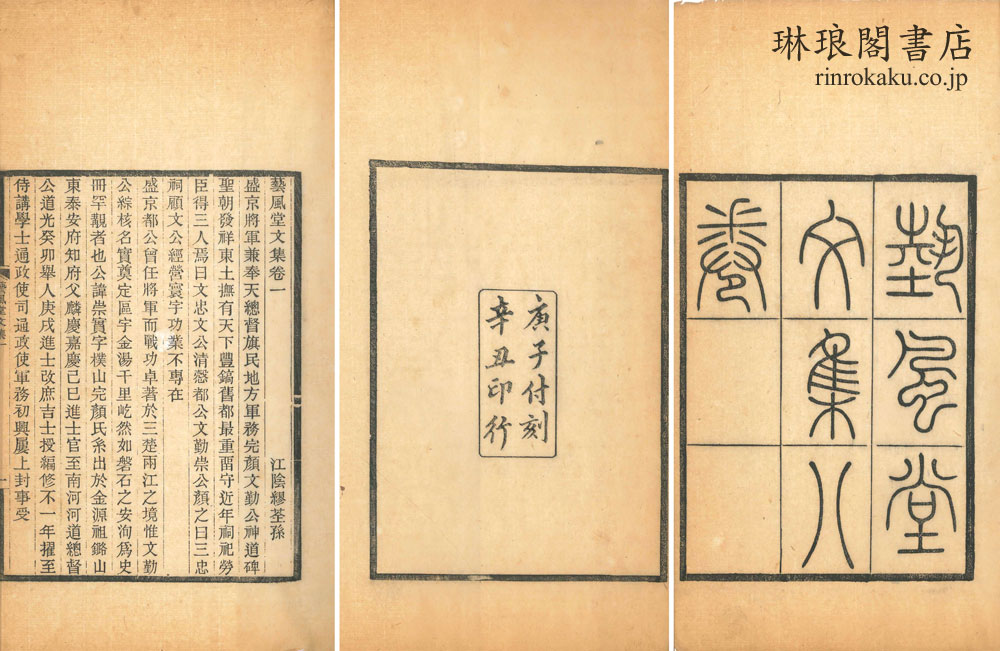 琳琅閣書店
rinrokaku.co.jp
藝風堂
文集八
卷
庚子付刻
辛丑印行
藝風堂文集卷一
江陰繆荃孫
盛京將軍兼奉天總督旗民地方軍務完顏文勤公神道碑
聖朝發祥東土撫有天下豐鎬舊都最重畱守近年祠祀勞
臣得三人焉曰文忠文公清慤都公文勤崇公顏之曰三忠
祠顧文公經營寰宇功業不專在
盛京都公曾任將軍而戰功卓著於三楚兩江之境惟文勤
公綜核名實奠定區宇金湯千里屹然如磐石之安洵爲史
冊罕覯者也公諱崇實字樸山完顏氏系出於金源祖鏴山
東泰安府知府父麟慶嘉慶己巳進士官至南河河道總督
公道光癸卯舉人庚戌進士改庶吉士授編修不一年擢至
侍講學士通政使司通政使軍務初興屢上封事受
藝風堂文集一
一